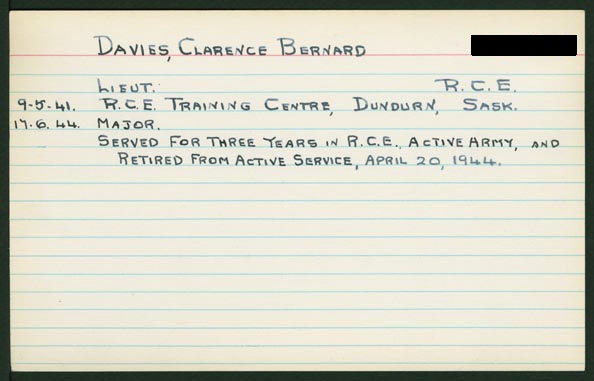 DAVIES, CLARENCE BERNARD
LIEUT. R.C.E.
9-5-41. R.C.E. TRAINING CENTRE, DUNDURN, SASK.
17.6.44. MAJOR.
SERVED FOR THREE YEARS IN R.C.E., ACTIVE ARMY, AND
RETIRED FROM ACTIVE SERVICE, APRIL 20, 1944.